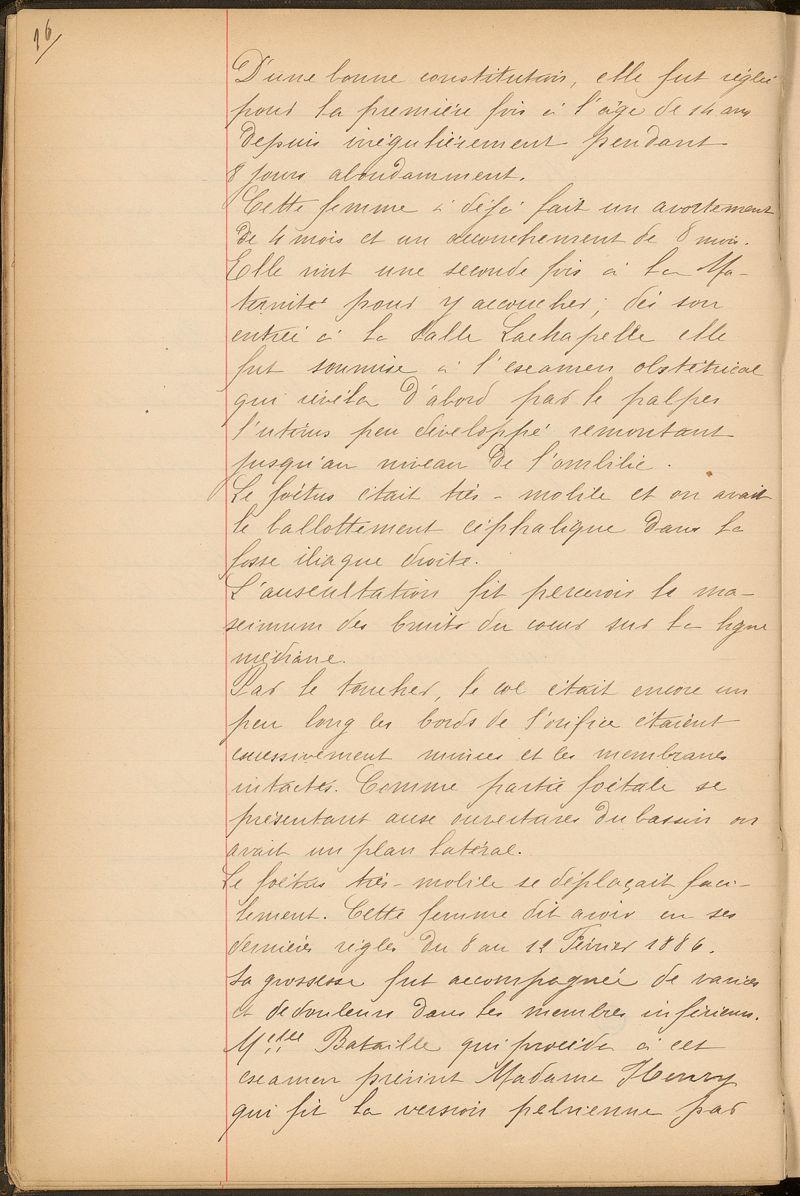 16/
D'une bonne constitution, elle fut réglée
pour la première fois à l'âge de 14 ans
depuis irrégulièrement pendant
8 jours abondamment.
Cette femme à déjà fait un avortement
de 4 mois et un accouchement de 8 mois.
Elle vint une seconde fois à la Ma-
ternité pour y accoucher; dès son
entrée à la Salle Lachapelle elle
fut soumise à l'examen obstétrical
qui révéla d'abord par le palper
l'utérus peu développé remontant
jusqu'au niveau de l'ombilic.
Le foétus était très-mobile et on avait
le ballottement céphalique dans la
fosse iliaque droite.
L'auscultation fit percevoir le ma-
ximum des bruits du coeur sur la ligne
médiane.
Par le toucher, le col était encore un
peu long les bords de l'orifice étaient
excessivement minces et les membranes
intactes. Comme partie foétale se
présentant aux ouvertures du bassin on
avait un plan latéral.
Le foétus très-mobile se déplaçait faci-
lement. Cette femme dit avoir eu ses
dernières règles du 8 au 12 Février 1886.
La grossesse fut accompagnée de varices
et de douleurs dans les membres inférieurs.
Melle Bataille qui procéda à cet
examen prévint Madame Henry
qui fit la version pelvienne par